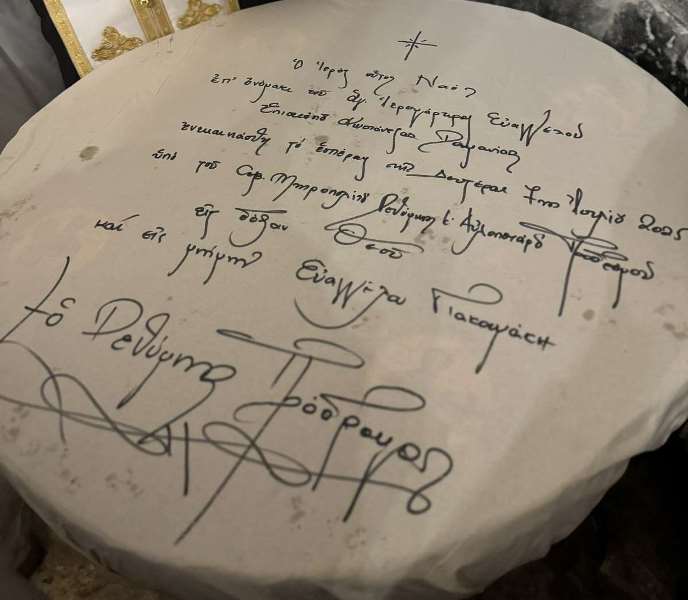 Ὁ Ἱερός οὗτος Ναός
ἐπ' ὀνόματι τοῦ Ἁγ. Ἱερομάρτυρος Εὐαγγέλου
Ἐπισκόπου Κωνστάντζας Ρουμανίας
ἐνεκαινιάσθη τό ἑσπέρας τῆς Δευτέρας 7ης Ἰουλίου 2025
ὑπό τοῦ Σεβ. Μητροπολίτου Ρεθύμνης κ. Αὐλοποτάμου Προδρόμου
εἰς δόξαν Θεοῦ
καί εἰς μνήμην Εὐαγγέλου Γιακουμάκη
+ ὁ Ρεθύμνης Πρόδρομος